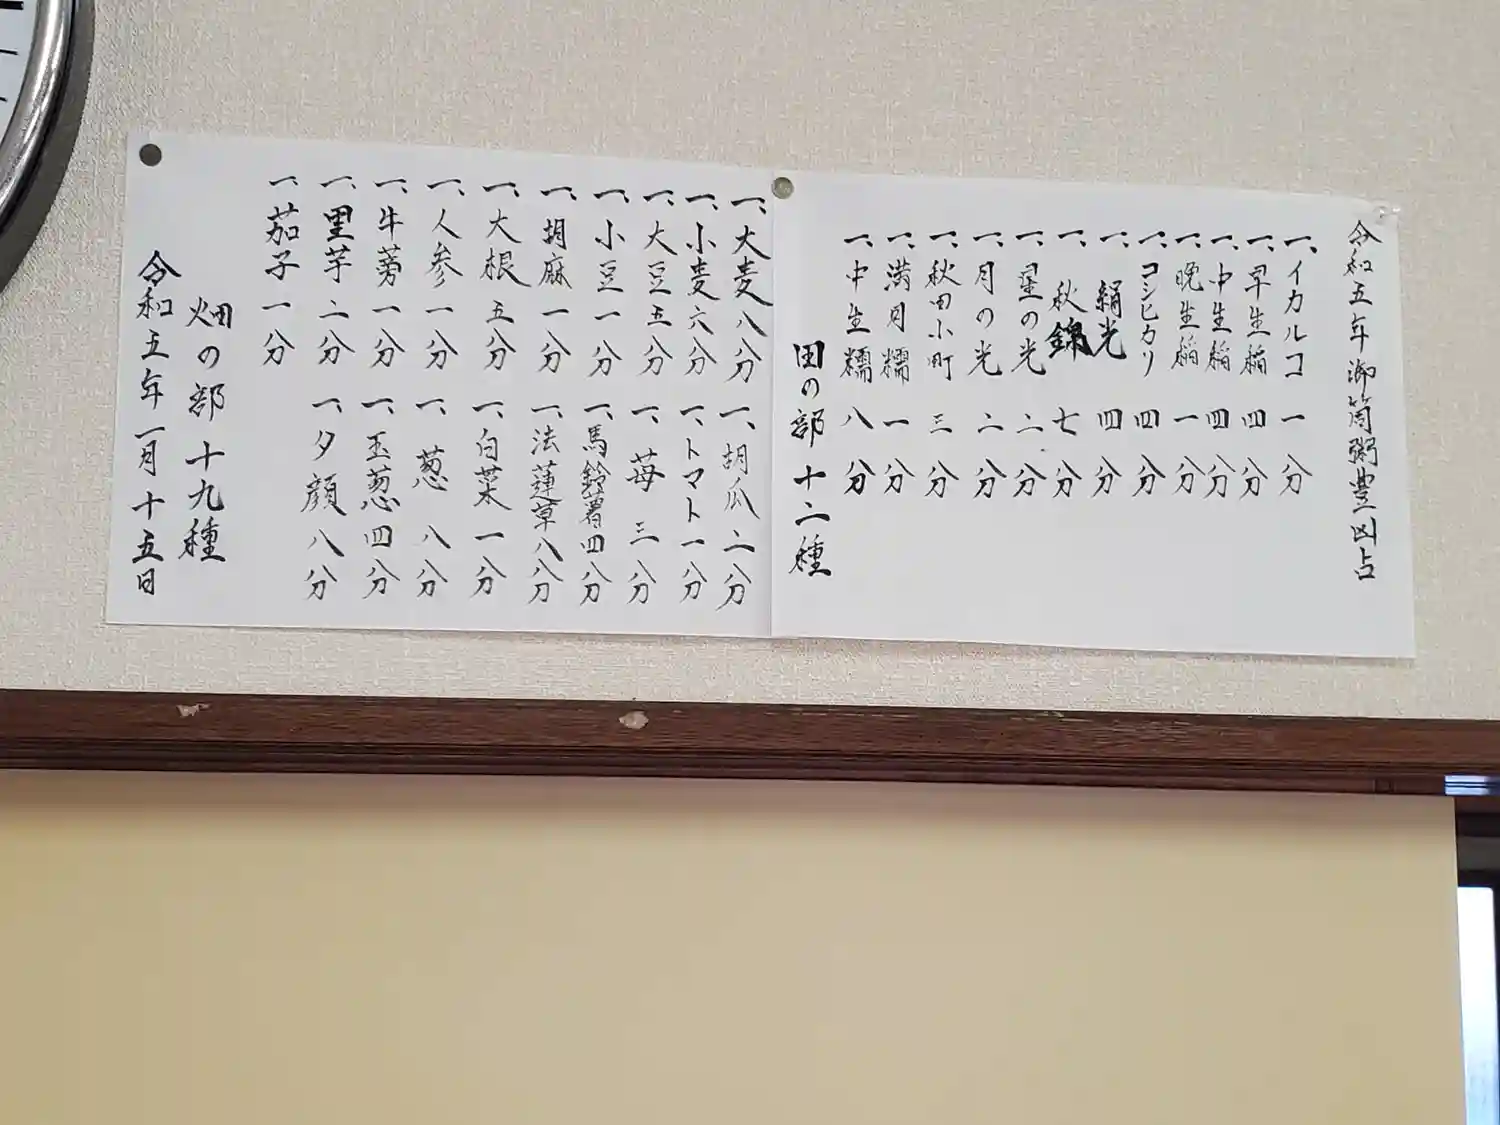 令和五年御筒粥豊凶占
一、イカルコ 一分
一、早生稲 四分
一、中生稲 四分
一、晩生稲 一分
一、コシヒカリ 四分
一、絹光 四分
一、秋錦 七分
一、星の光 二分
一、月の光 二分
一、秋田小町 三分
一、満月糯 一分
一、中生糯 八分
田の部 十二種
一、大麦 八分
一、小麦 六分
一、大豆 五分
一、小豆 一分
一、胡麻 一分
一、大根 五分
一、人参 一分
一、牛蒡 一分
一、里芋 二分
一、茄子 一分
一、胡瓜 二分
一、トマト 一分
一、苺 三分
一、馬鈴署 四分
一、法蓮草 八分
一、白菜 一分
一、葱 八分
一、玉葱 四分
一、夕顔 八分
畑の部 十九種
令和五年一月十五日